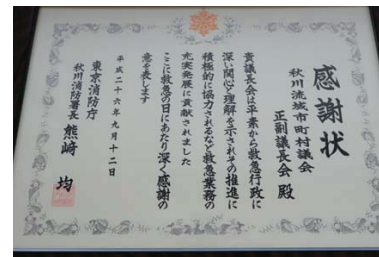 感謝状
秋川流域市町村議会
正副議長会 殿
貴議長会は平素から救急行政に
深い関心と理解を示されその推進に
積極的に協力されるなど救急業務の
充実発展に貢献されました
ここに救急の日にあたり深く感謝の
意を表します
平成二十六年九月十二日
東京消防庁
秋川消防署長 熊﨑 均